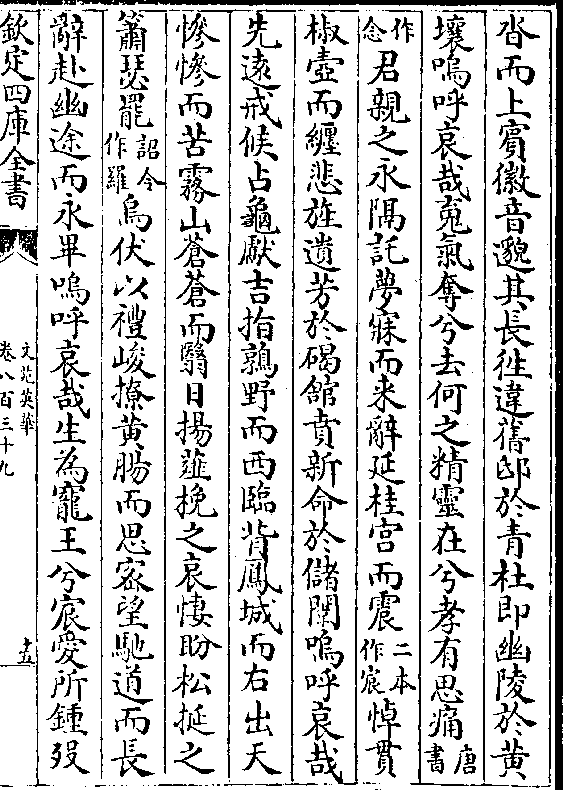 沓而上賓徽音邈其長往違舊邸於青社即幽陵於黄
壤嗚呼哀哉䰟氣奪兮去何之精靈在兮孝有思痛唐書
作念君親之永隔託夢寐而来辭延桂宫而震二本作宸悼貫
椒壼而纒悲旌遺芳於碣舘賁新命於儲闈嗚呼哀哉
先逺戒候占龜獻吉指鶉野而西臨背鳳城而右出天
慘慘而苦霧山蒼蒼而翳日揚薤挽之哀悽盼松挺之
簫瑟罷詔令作羅烏伏以禮峻撩黄腸而思宻望馳道而長
辭赴幽途而永畢嗚呼哀哉生為寵王兮宸愛所鍾殁
欽定四庫全書
文苑英華
卷八百三十九
十五